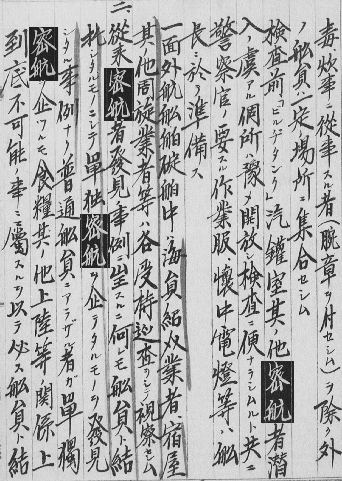 毒、炊事ニ從事スル者(腕章ヲ付セシム)ヲ除ク外
ノ船員ハ一定ノ場所ニ集合セシム
檢査前「ビルヂタンク」汽罐室其ノ他密航者潜
入ノ虞アル個所ハ豫メ開放シ檢査ニ便ナラシムルト共ニ
警察官ノ要スル作業服、懷中電燈等ハ船
長ニ於テ準備ス
一面外航船舶碇泊中ハ海員紹介業者宿屋
其ノ他周旋業者等ハ各受持巡査ヲシテ視察セシム
二、從來密航者發見ノ事例ニ徴スルニ何レモ船員ト結
托シタルモノニシテ單独密航ヲ企テタルモノヲ發見
シタル事例ナク普通船員ニアラザル者ガ單獨
密航ヲ企ツルモ食糧其ノ他上陸等ノ關係上
到底不可能ノ事ニ屬スルヲ以テ必ズ船員ト結